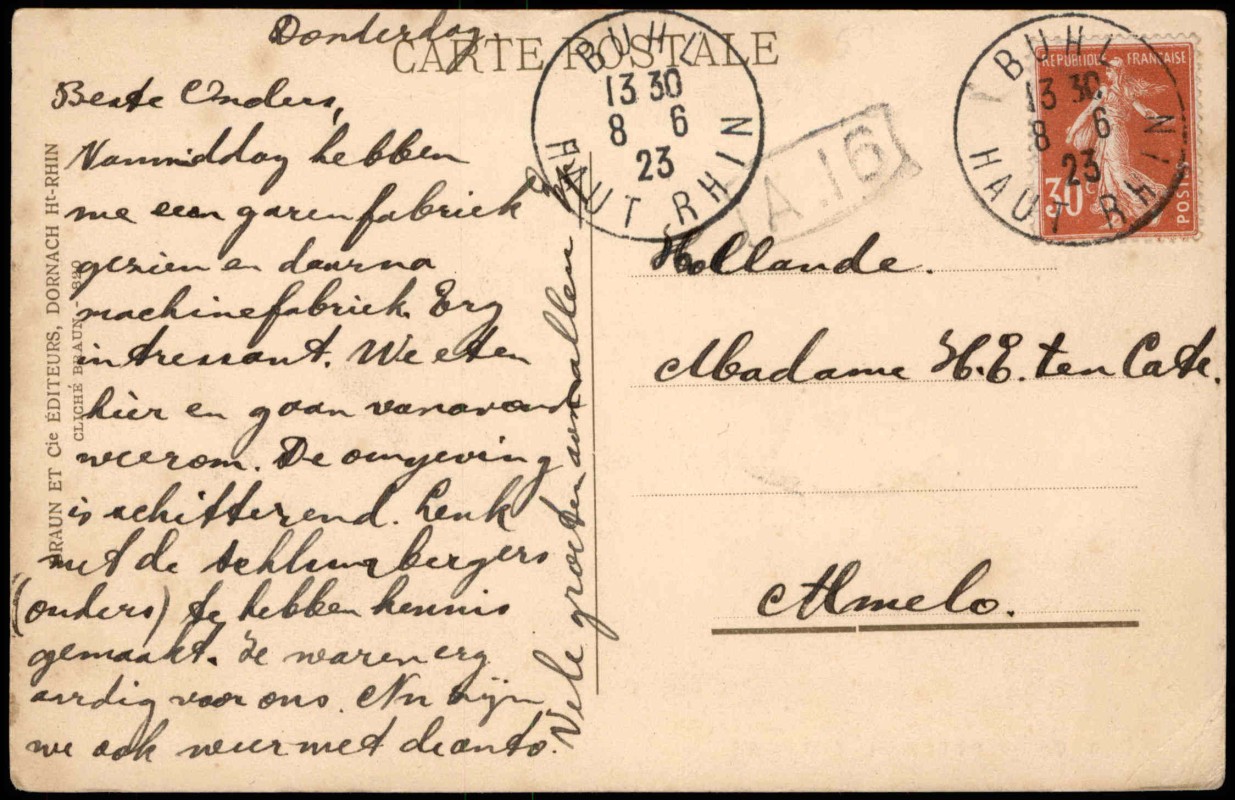 Donderdag.
CARTE POSTALE
Beste Ouders,
Vanmiddag hebben
me een garenfabriek
gezien en daarna
machinefabriek. Erg
intressant. We eten
hier en gaan vanavond
weerom. De omgeving
is schitterend. Leuk
met de Schlumbergers
(ouders) te hebben kennis
gemaakt. Ze waren erg
aardig voor ons. Nu zijn
we ook weer met de auto.
Vele groeten aan allen
BRAUN ET Cie ÉDITEURS, DORNACH Ht-RHIN
CLICHÉ BRAUN - 820
BUHL
13 30
8 6
23
HAUT RHIN
A.16
BUHL
13 30
8 6
23
HAUT RHIN
REPUBLIQUE FRANÇAISE
30c
POSTES
Hollande.
Madame H.E. ten Cate.
Almelo.